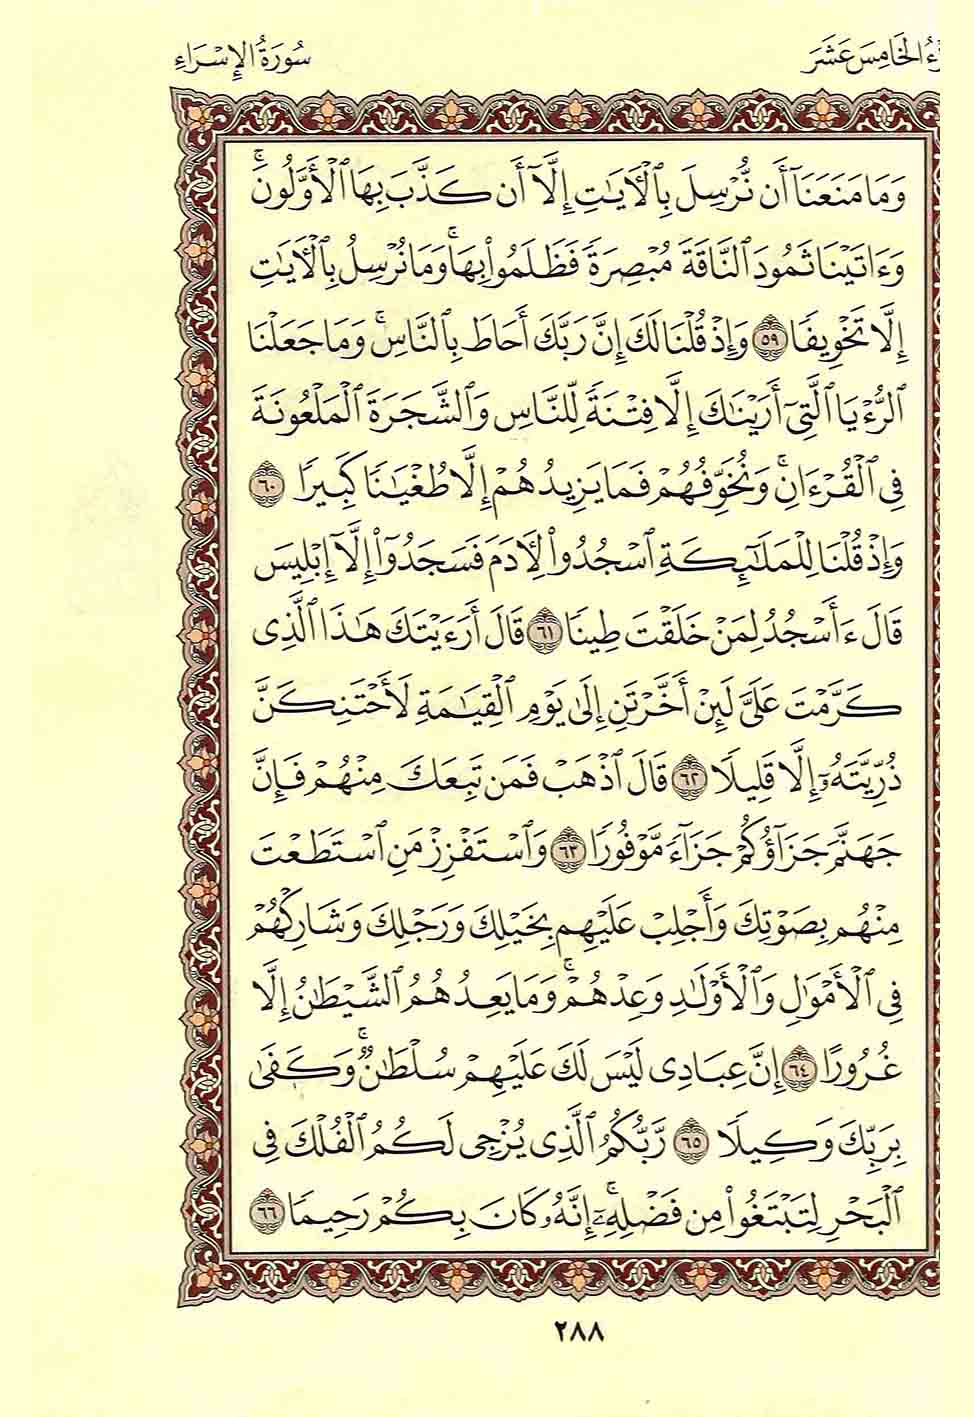 سُورَةُ الإِسْرَاءِ
الخَامِسَ عَشَرَ
وَمَا مَنَعَنَآ أَن نُّرْسِلَ بِٱلْأٓيَٰتِ إِلَّآ أَن كَذَّبَ بِهَا ٱلْأَوَّلُونَۚ
وَءَاتَيْنَا ثَمُودَ ٱلنَّاقَةَ مُبْصِرَةً فَظَلَمُوا۟ بِهَاۚ وَمَا نُرْسِلُ بِٱلْأٓيَٰتِ
إِلَّا تَخْوِيفًا ٥٩ وَإِذْ قُلْنَا لَكَ إِنَّ رَبَّكَ أَحَاطَ بِٱلنَّاسِۚ وَمَا جَعَلْنَا
ٱلرُّءْيَا ٱلَّتِىٓ أَرَيْنَٰكَ إِلَّا فِتْنَةً لِّلنَّاسِ وَٱلشَّجَرَةَ ٱلْمَلْعُونَةَ
فِى ٱلْقُرْءَانِۚ وَنُخَوِّفُهُمْ فَمَا يَزِيدُهُمْ إِلَّا طُغْيَٰنًا كَبِيرًا ٦٠
وَإِذْ قُلْنَا لِلْمَلَٰٓئِكَةِ ٱسْجُدُوا۟ لِأٓدَمَ فَسَجَدُوٓا۟ إِلَّآ إِبْلِيسَ
قَالَ ءَأَسْجُدُ لِمَنْ خَلَقْتَ طِينًا ٦١ قَالَ أَرَءَيْتَكَ هَٰذَا ٱلَّذِى
كَرَّمْتَ عَلَىَّ لَئِنْ أَخَّرْتَنِ إِلَىٰ يَوْمِ ٱلْقِيَٰمَةِ لَأَحْتَنِكَنَّ
ذُرِّيَّتَهُۥٓ إِلَّا قَلِيلًا ٦٢ قَالَ ٱذْهَبْ فَمَن تَبِعَكَ مِنْهُمْ فَإِنَّ
جَهَنَّمَ جَزَآؤُكُمْ جَزَآءً مَّوْفُورًا ٦٣ وَٱسْتَفْزِزْ مَنِ ٱسْتَطَعْتَ
مِنْهُم بِصَوْتِكَ وَأَجْلِبْ عَلَيْهِم بِخَيْلِكَ وَرَجِلِكَ وَشَارِكْهُمْ
فِى ٱلْأَمْوَٰلِ وَٱلْأَوْلَٰدِ وَعِدْهُمْۚ وَمَا يَعِدُهُمُ ٱلشَّيْطَٰنُ إِلَّا
غُرُورًا ٦٤ إِنَّ عِبَادِى لَيْسَ لَكَ عَلَيْهِمْ سُلْطَٰنٌۚ وَكَفَىٰ
بِرَبِّكَ وَكِيلًا ٦٥ رَّبُّكُمُ ٱلَّذِى يُزْجِى لَكُمُ ٱلْفُلْكَ فِى
ٱلْبَحْرِ لِتَبْتَغُوا۟ مِن فَضْلِهِۦٓۚ إِنَّهُۥ كَانَ بِكُمْ رَحِيمًا ٦٦
٢٨٨